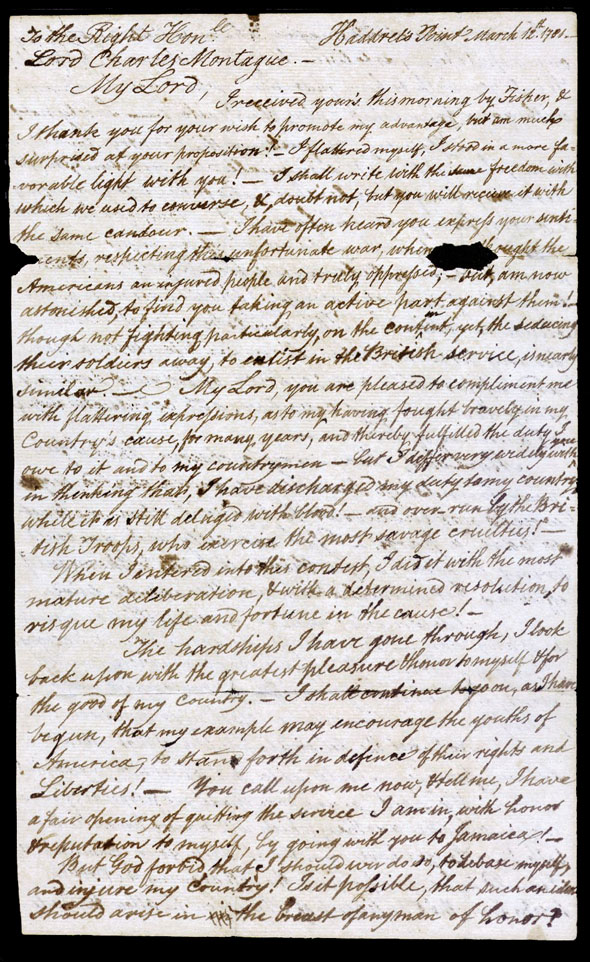 To the Right Honble Haddrels Point March 12th 1781.—
Lord Charles Montague.—
My Lord,
I received yours this morning by Fisher, &
I thank you for your wish to promote my advantage, but am much
surprised at your proposition!— I flattered myself, I stood in a more fa-
vorable light with you!— I shall write with the same freedom with
which we used to converse, & doubt not, but you will receive it with
the same candour.— I have often heard you express your senti-
ments, respecting this unfortunate war, when thought the
Americans an injured people and truly oppressed;— but, am now
astonished, to find you taking an active part against them!—
though not fighting particularly, on the contint, yet, the seducing
their soldiers away, to enlist in the British service, is nearly
similar.— My Lord, you are pleased to compliment me
with flattering expressions, as to my having fought bravely in my
Country's cause, for many, years, and thereby fulfilled the duty I
owe to it and to my countrymen— but I differ very widely with you
in thinking that, I have discharged my duty to my country,
while it is still deluged with blood!— and over run by the Bri-
tish Troops, who exercise the most savage cruelties!—
When I entered into this contest, I did it with the most
mature deliberation, & with a determined resolution, to
risque my life and fortune in the cause!—
The hardships I have gone through, I look
back upon with the greatest pleasure & honor to myself & for
the good of my country.— I shall continue to go on, as I have
begun, that my example may encourage the youths of
America, to stand forth in defence of their rights and
Liberties!— You call upon me now, & tell me, I have
a fair opening of quitting the service I am in, with honor
& reputation to myself, by going with you to Jamaica!—
But God forbid that I should ever do so, to debase myself,
and injure my Country! Is it possible, that such an idea
should arise in the breast of any man of honor?